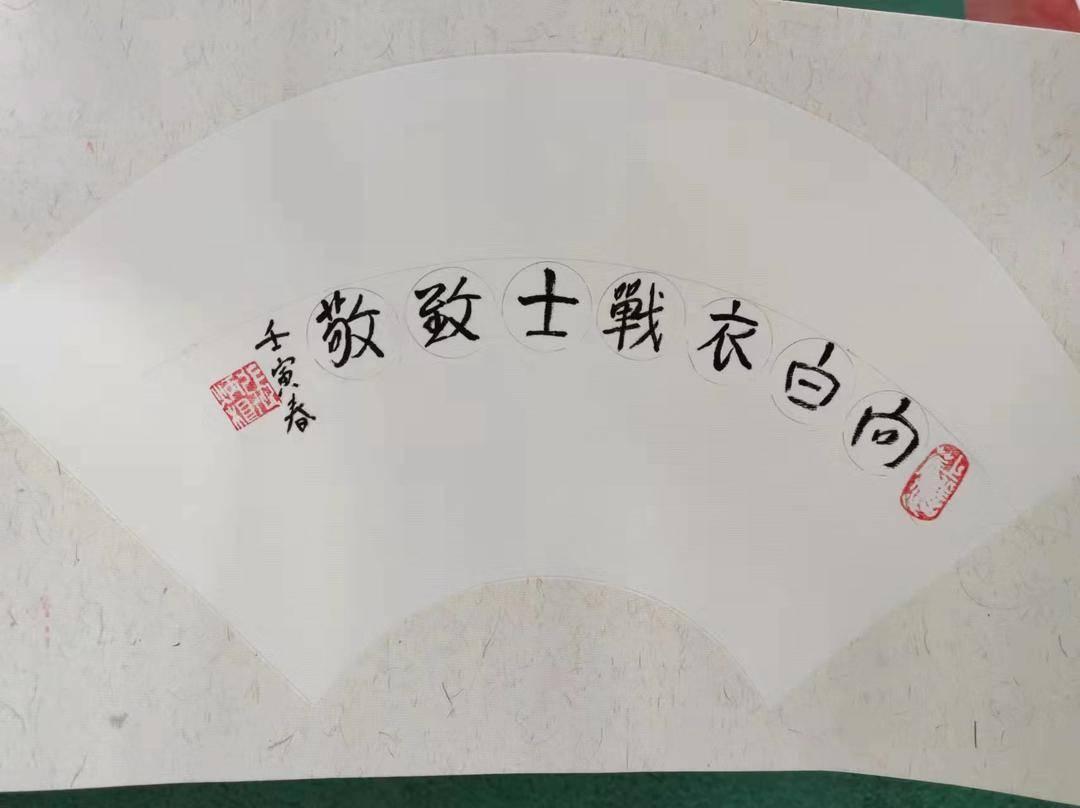 向白衣戰士致敬
壬寅春